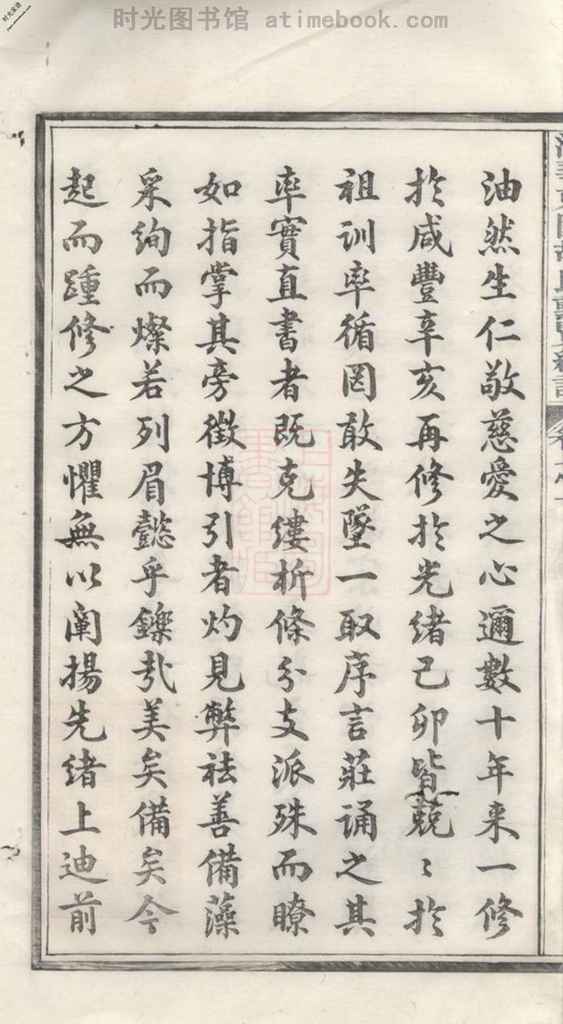 时光图书馆 atimebook.com
油然生仁敬慈愛之心邇數十年來一修
於咸豐辛亥再修於光緒己卯皆兢〻於
祖訓率循罔敢失墜一取序言莊誦之其
率實直書者既克縷析條分支派殊而瞭
如指掌其旁徵博引者灼見弊祛善備藻
采絢而燦若列眉懿乎鑠哉美矣備矣今
起而踵修之方懼無以闡揚先緒上迪前